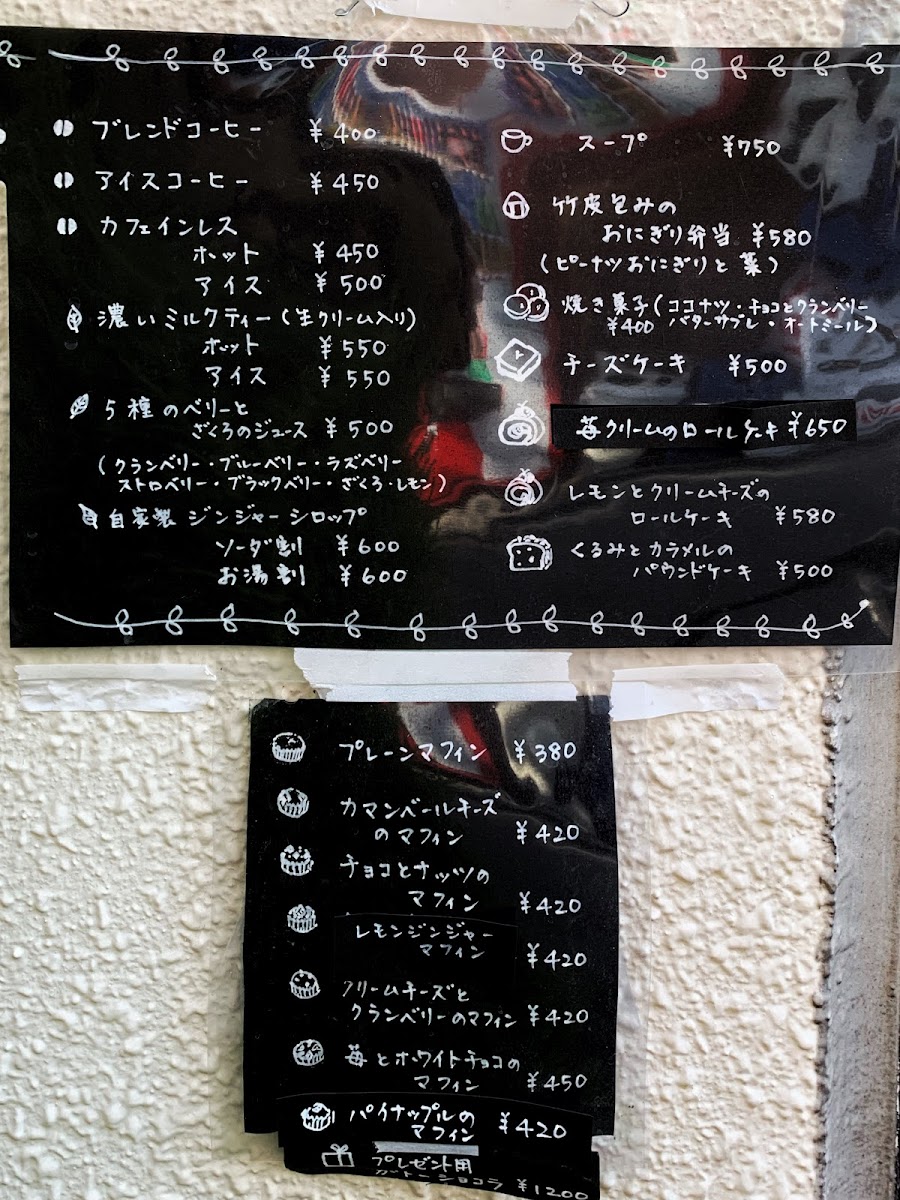 ブレンドコーヒー ¥400
アイスコーヒー ¥450
カフェインレス
ホット ¥450
アイス ¥500
濃いミルクティー(生クリーム入り)
ホット ¥550
アイス ¥550
5種のベリーと
ざくろのジュース ¥500
(クランベリー・ブルーベリー・ラズベリー
ストロベリー・ブラックベリー・ざくろ・レモン)
自家製 ジンジャーシロップ
ソーダ割 ¥600
お湯割 ¥600
スープ ¥750
竹皮包みの
おにぎり弁当 ¥580
(ピーナツおにぎりと菜)
焼き菓子(ココナツ・チョコとクランベリー
¥400 バターサブレ・オートミール)
チーズケーキ ¥500
苺クリームのロールケーキ ¥650
レモンとクリームチーズの
ロールケーキ ¥580
くるみとカラメルの
パウンドケーキ ¥500
プレーンマフィン ¥380
カマンベールチーズ
のマフィン ¥420
チョコとナッツの
マフィン ¥420
レモンジンジャー
マフィン ¥420
クリームチーズと
クランベリーのマフィン ¥420
苺とホワイトチョコの
マフィン ¥450
パイナップルの
マフィン ¥420
プレゼント用
ガトーショコラ ¥1200